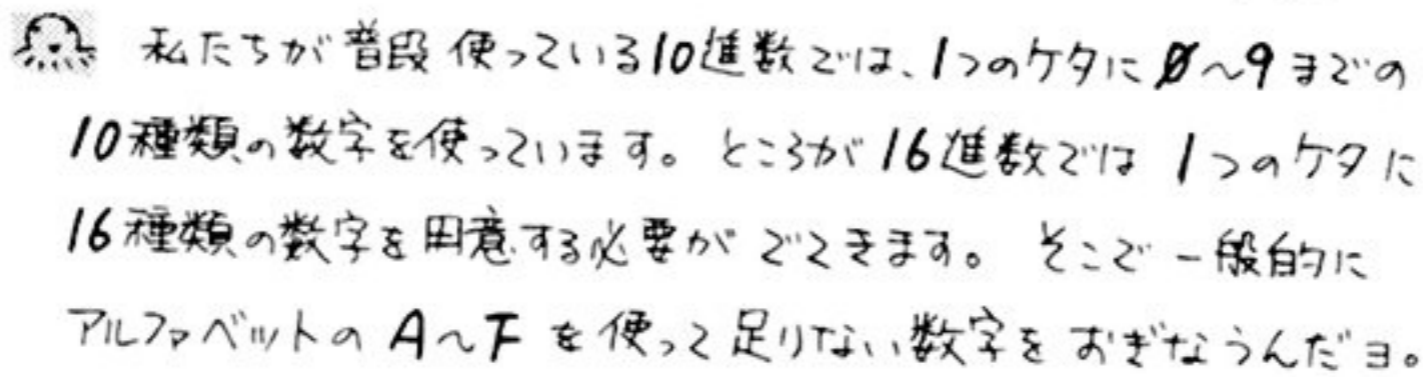 私たちが普段使っている10進数では、1つのケタに0〜9までの
10種類の数字を使っています。ところが16進数では1つのケタに
16種類の数字を用意する必要がでてきます。そこで一般的に
アルファベットのA〜Fを使って足りない数字をおぎなうんだヨ。